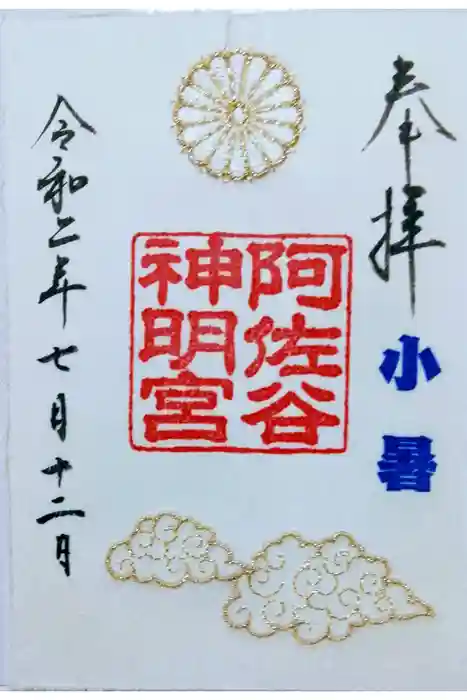 奉拝
小暑
阿佐谷
神明宮
令和二年七月十二月